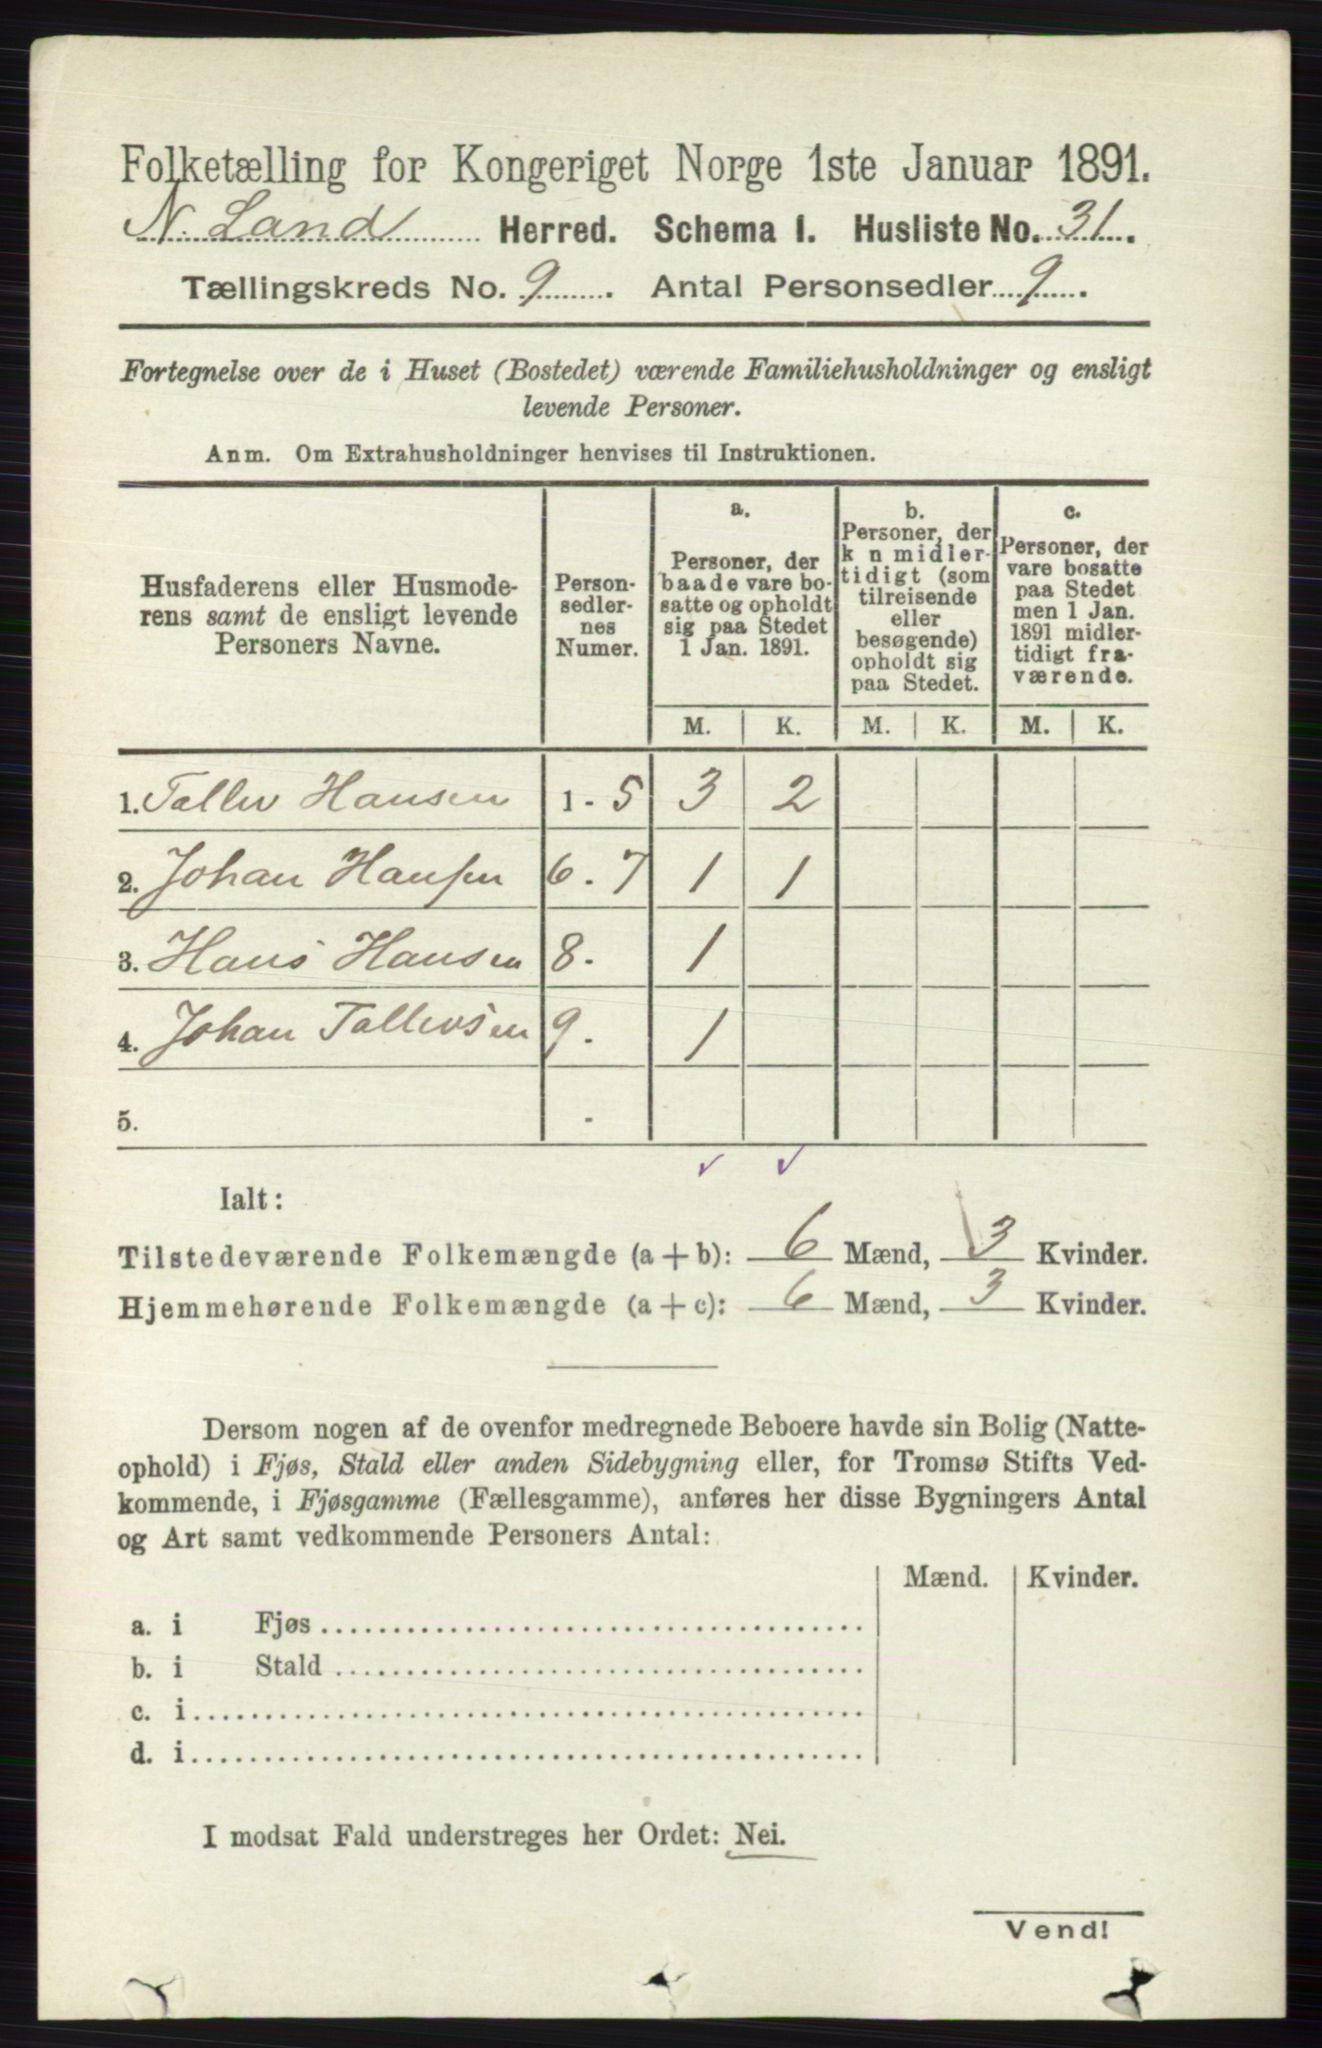 Folketælling for Kongeriget Norge 1ste Januar 1891.
N. Land Herred. Schema I. Husliste No. 31.
Tællingskreds No. 9. Antal Personsedler 9.
Fortegnelse over de i Huset (Bostedet) værende Familiehusholdninger og ensligt
levende Personer.
Anm. Om Extrahusholdninger henvises til Instruktionen.
Husfaderens eller Husmode-
rens samt de ensligt levende
Personers Navne.
Person-
sedler-
nes
Numer.
a.
Personer, der
baade vare bo-
satte og opholdt
sig paa Stedet
1 Jan. 1891.
b.
Personer, der
k n midler-
tidigt (som
tilreisende
eller
besøgende)
opholdt sig
paa Stedet.
c.
Personer, der
vare bosatte
paa Stedet
men 1 Jan.
1891 midler-
tidigt fra-
værende.
M. K. M. K. M. K.
1. Tallev Hansen 1 - 5 3 2
2. Johan Hansen 6 - 7 1 1
3. Hans Hansen 8 - 1
4. Johan Tallevsen 9 - 1
5. -
Ialt:
Tilstedeværende Folkemængde (a + b): 6 Mænd, 3 Kvinder.
Hjemmehørende Folkemængde (a + c): 6 Mænd, 3 Kvinder.
Dersom nogen af de ovenfor medregnede Beboere havde sin Bolig (Natte-
ophold) i Fjøs, Stald eller anden Sidebygning eller, for Tromsø Stifts Ved-
kommende, i Fjøsgamme (Fællesgamme), anføres her disse Bygningers Antal
og Art samt vedkommende Personers Antal:
Mænd. Kvinder.
a. i Fjøs
b. i Stald
c. i
d. i
I modsat Fald understreges her Ordet: Nei.
Vend!